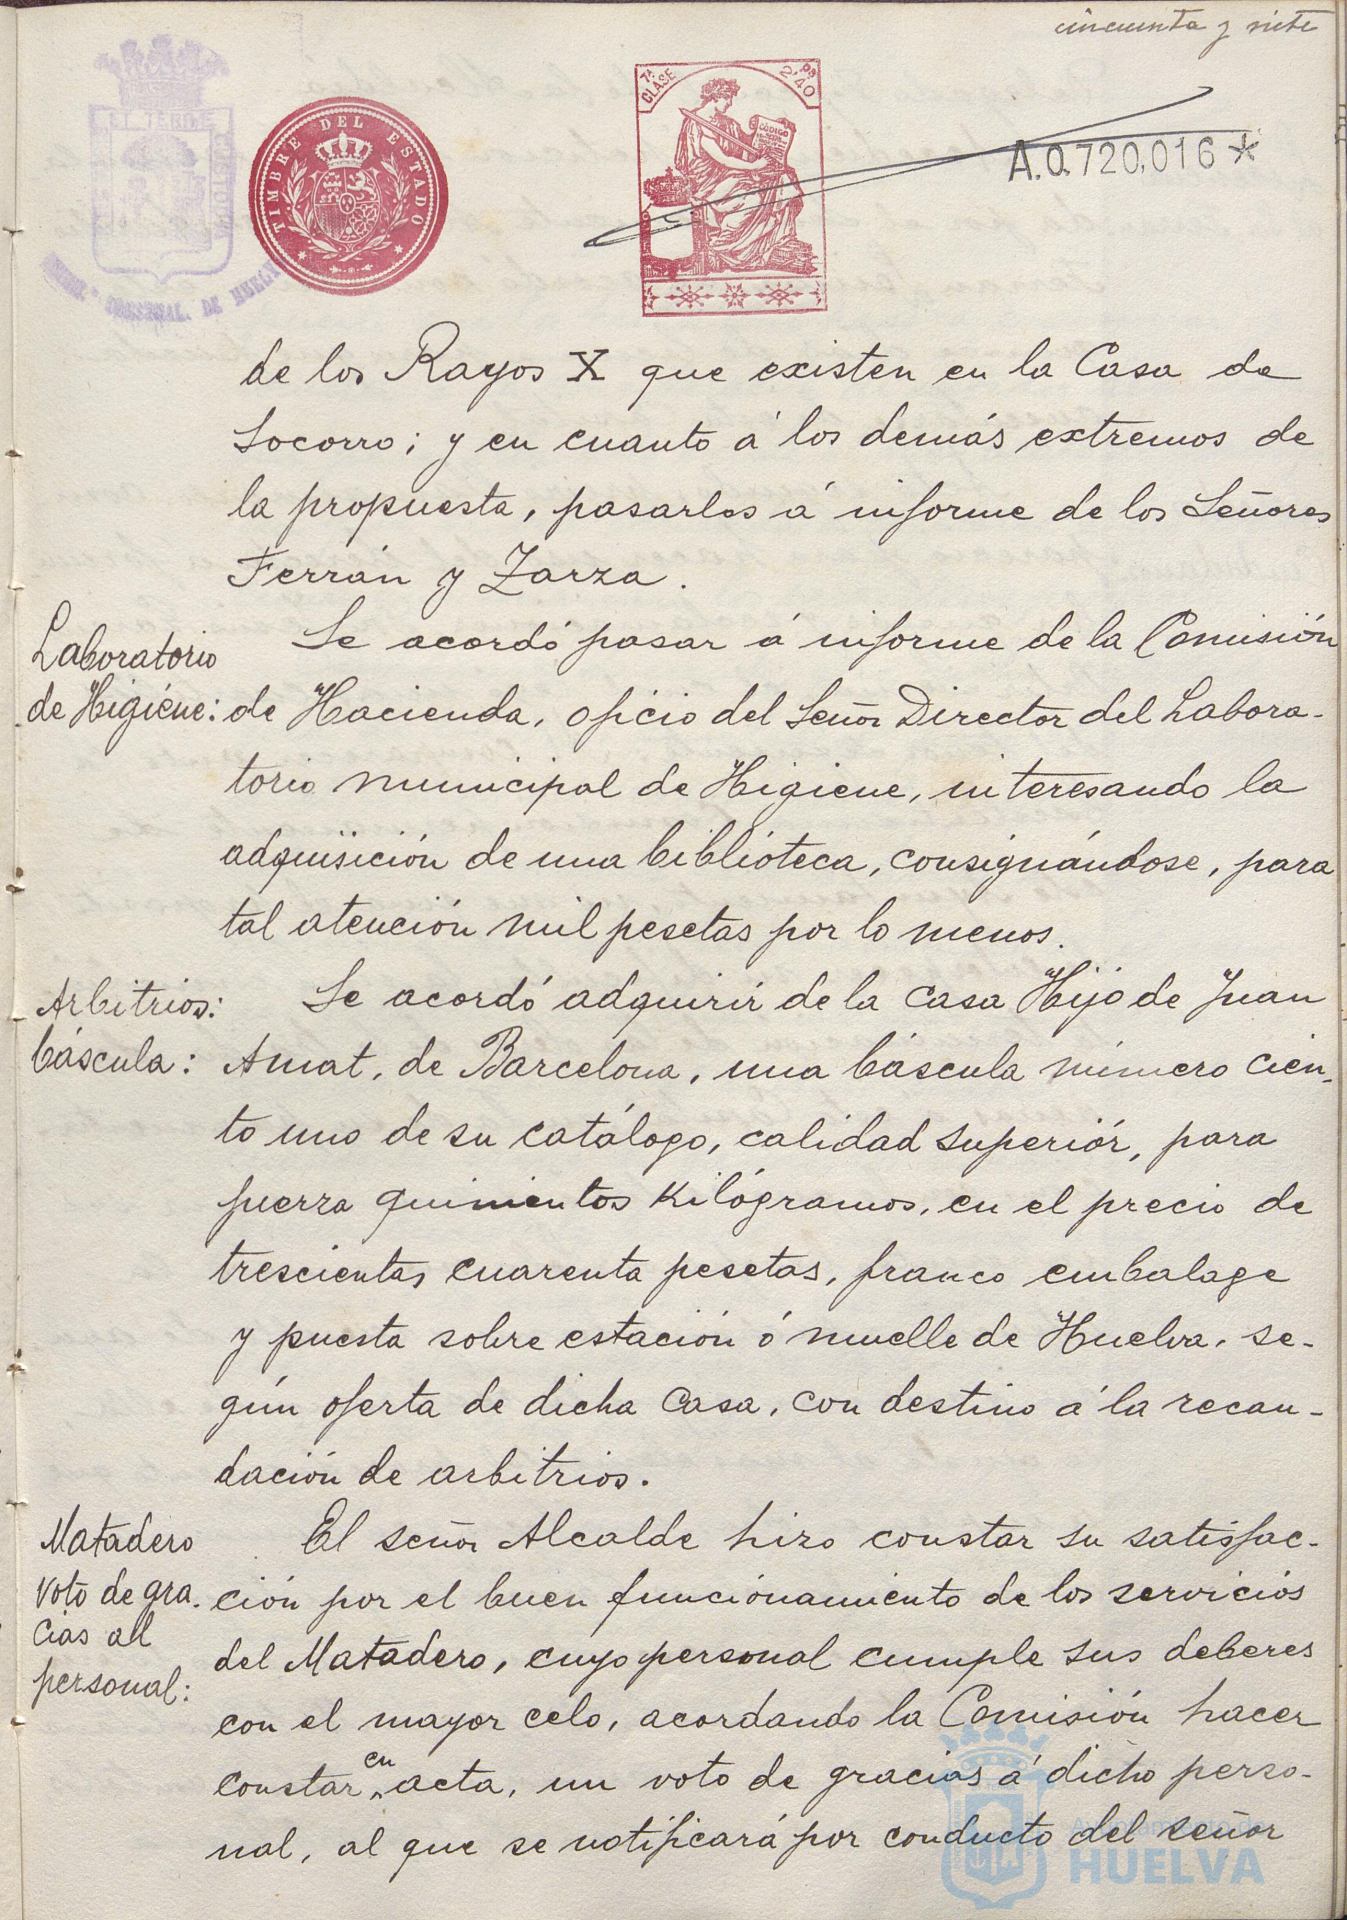 cincuenta y siete
TIMBRE DEL ESTADO
7ª CLASE
2'40 ps
CÓDIGO
A.0.720,016*
de los Rayos X que existen en la Casa de
Socorro; y en cuanto á los demás extremos de
la propuesta, pasarlos á informe de los Señores
Ferrán y Zarza.
Laboratorio
de Higiéne:
Se acordó pasar á informe de la Comisión
de Hacienda, oficio del Señor Director del Labora-
torio municipal de Higiene, interesando la
adquisición de una biblióteca, consignándose, para
tal atención mil pesetas por lo menos.
Arbitrios:
báscula:
Se acordó adquirir de la casa Hijo de Juan
Amat, de Barcelona, una báscula número cien-
to uno de su catálogo, calidad superiór, para
fuerza quinientos kilógramos, en el precio de
trescientas cuarenta pesetas, franco embalage
y puesta sobre estación ó muelle de Huelva, se-
gún oferta de dicha casa, con destino á la recau-
dación de arbitrios.
Matadero
voto de gra-
cias al
personal:
El señor Alcalde hizo constar su satisfac-
ción por el buen funcionamiento de los servicios
del Matadero, cuyo personal cumple sus deberes
con el mayor celo, acordando la Comisión hacer
constar en acta, un voto de gracias á dicho perso-
nal, al que se notificará por conducto del señor
Ayuntamiento de
HUELVA